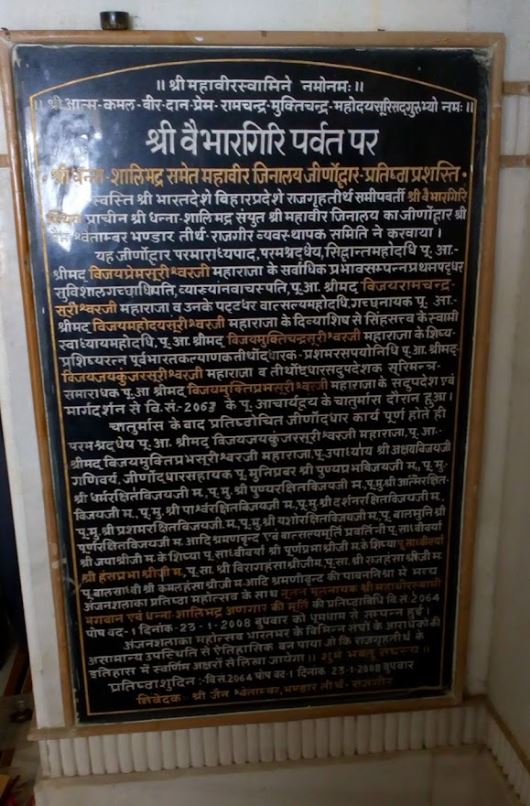 ।। श्री महावीरस्वामिने नमोनमः ।।
।। श्री आत्म-कमल-वीर-दान-प्रेम-रामचन्द्र-मुक्तिचन्द्र-महोदयसूरिसद्गुरुभ्यो नमः ।।
श्री वैभारगिरि पर्वत पर
• श्री धन्ना-शालिभद्र समेत महावीर जिनालय जीर्णोद्धार-प्रतिष्ठा प्रशस्ति •
स्वस्ति श्री भारतदेशे बिहारप्रदेशे राजगृहतीर्थ समीपवर्ती श्री वैभारगिरि
प्राचीन श्री धन्ना-शालिभद्र संयुत श्री महावीर जिनालय का जीर्णोद्धार श्री
श्वेताम्बर भण्डार तीर्थ-राजगीर व्यवस्थापक समिति ने करवाया ।
यह जीर्णोद्धार परमाराध्यपाद, परमश्रद्धेय, सिद्धान्तमहोदधि पू. आ.-
श्रीमद् विजयप्रेमसूरीश्वरजी महाराजा के सर्वाधिक प्रभावसम्पन्नप्रथमपट्टधर
सुविशालगच्छाधिपति, व्याख्यानवाचस्पति, पू.आ. श्रीमद् विजयरामचन्द्र-
सूरीश्वरजी महाराजा व उनके पट्टधर वात्सल्यमहोदधि, गच्छनायक पू. आ.-
श्रीमद् विजयमहोदयसूरीश्वरजी महाराजा के दिव्याशिष से सिंहसत्त्व के स्वामी
स्वाध्यायमहोदधि, पू.आ. श्रीमद् विजयमुक्तिचन्द्रसूरीश्वरजी महाराजा के शिष्य-
प्रशिष्यरत्न पूर्वभारतकल्याणकतीर्थोद्धारक-प्रशमरसपयोनिधि पू. आ. श्रीमद्-
विजयजयकुंजरसूरीश्वरजी महाराजा व तीर्थोद्धारसदुपदेशक सूरिमन्त्र-
समाराधक पू.आ श्रीमद् विजयमुक्तिप्रभसूरीश्वरजी महाराजा के सदुपदेश एवं
मार्गदर्शन से वि.सं.-2063 के पू. आचार्यद्वय के चातुर्मास दौरान हुआ ।
चातुर्मास के बाद प्रतिष्ठोचित जीर्णोद्धार कार्य पूर्ण होते ही
परमश्रद्धेय पू. आ. श्रीमद् विजयजयकुंजरसूरीश्वरजी महाराजा, पू. आ.-
श्रीमद् विजयमुक्तिप्रभसूरीश्वरजी महाराजा, पू. उपाध्याय श्री अक्षयविजयजी
गणिवर्य, जीर्णोद्धारसहायक पू. मुनिप्रवर श्री पुण्यप्रभविजयजी म., पू. मु.
श्री धर्मरक्षितविजयजी म., पू.मु. श्री पुण्यरक्षितविजयजी म., पू.मु.श्री आत्मरक्षित-
विजयजी म., पू.मु. श्री पार्श्वरक्षितविजयजी म., पू. मु. श्री दर्शनरक्षितविजयजी म.,
पू.मु. श्री प्रशमरक्षितविजयजी म., पू.मु. श्री यशोरक्षितविजयजी म., पू. बालमुनि श्री
पूर्णरक्षितविजयजी म. आदि श्रमणवृन्द एवं वात्सल्यमूर्ति प्रवर्तिनी पू. साध्वीवर्या
श्री जयाश्रीजी म. के शिष्या पू. साध्वीवर्या श्री पूर्णप्रभाश्रीजी म. के शिष्या पू. साध्वीवर्या
श्री हंसप्रभाश्रीजी म., पू. सा. श्री विरागहंसाश्रीजी म., पू. सा. श्री राजहंसाश्रीजी म.
पू. बालसाध्वी श्री कमलहंसाश्री जी म. आदि श्रमणीवृन्द की पावननिश्रा में भव्य
अंजनशलाका प्रतिष्ठा महोत्सव के साथ नूतन मूलनायक श्री महावीरस्वामी
भगवान एवं धन्ना-शालिभद्र अणगार की मूर्ति की प्रतिष्ठाविधि वि.सं. 2064
पोष वद-1 दिनांक-23-1-2008 बुधवार को धूमधाम से सम्पन्न हुई ।
अंजनशलाका महोत्सव भारतभर के विभिन्न संघों के आराधकों की
असामान्य उपस्थिति से ऐतिहासिक बन पाया जो कि राजगृहतीर्थ के
इतिहास में स्वर्णिम अक्षरों से लिखा जायेगा ।। शुभं भवतु सङ्घस्य ।।
प्रतिष्ठाशुभदिन :-वि.सं.2064 पोष वद-1 दिनांक 23-1-2008 बुधवार
निवेदक:- श्री जैन श्वेताम्बर, भण्डार तीर्थ-राजगीर